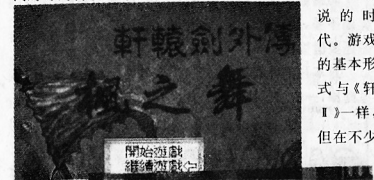 軒轅劍外傳
楓之舞
開始遊戲
繼續遊戲
说的时
代。游戏
的基本形
式与《轩
Ⅱ》一样，
但在不少